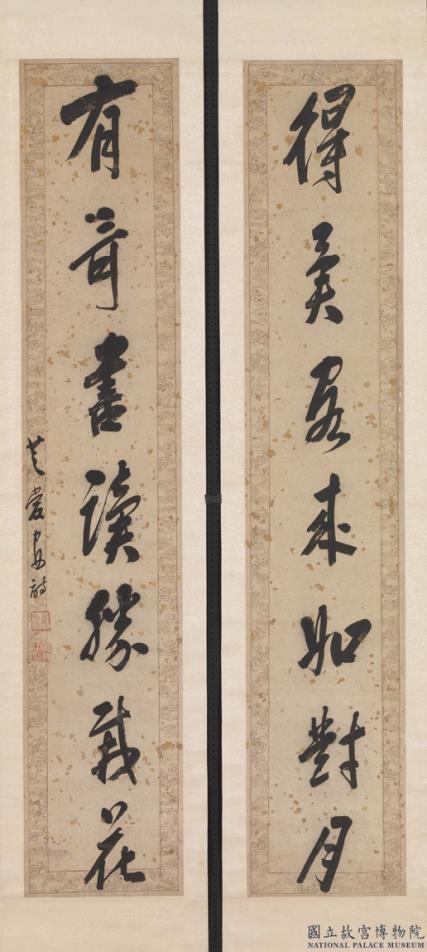 得異客來如對月
有奇書讀勝栽花
國立故宮博物院
NATIONAL PALACE MUSEUM